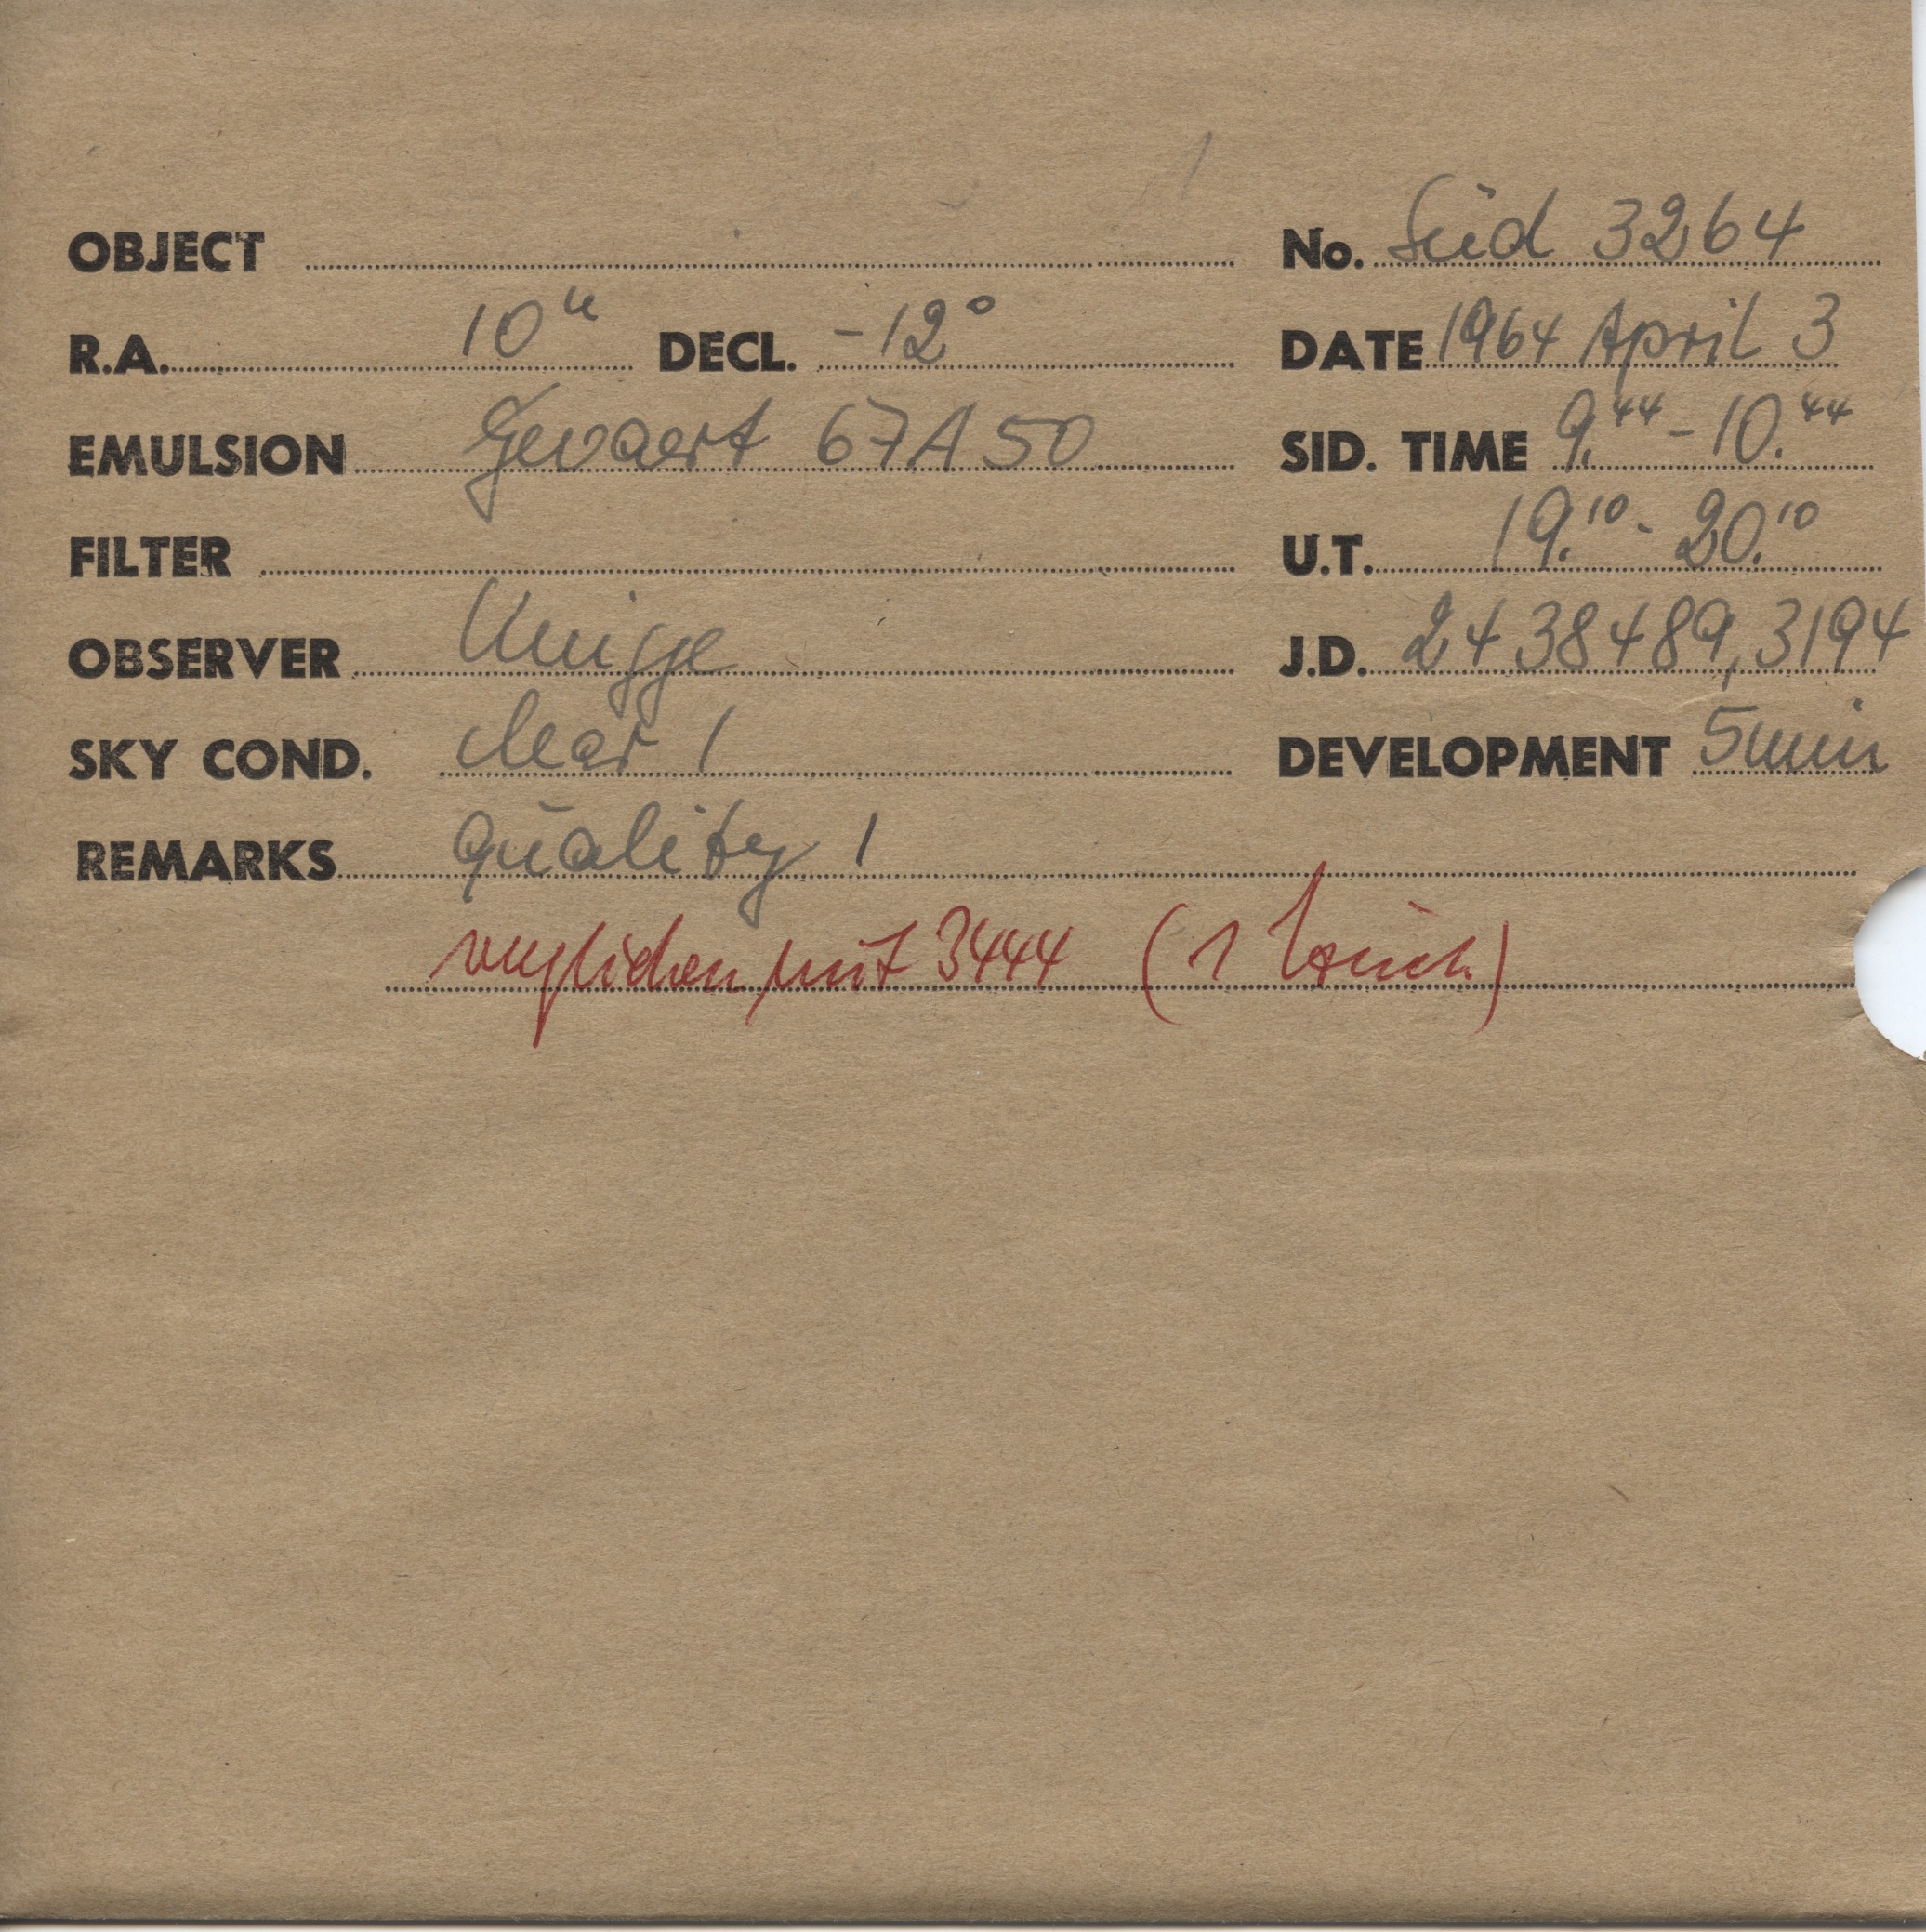 OBJECT No. Süd 3264
R.A. 10h DECL. -12° DATE 1964 April 3
EMULSION Gevaert 67A50 SID. TIME 9.44 - 10.44
FILTER U.T. 19.10 - 20.10
OBSERVER Knigge J.D. 2438489,3194
SKY COND. clear 1 DEVELOPMENT 5min
REMARKS quality 1
verglichen mit 3444 (1